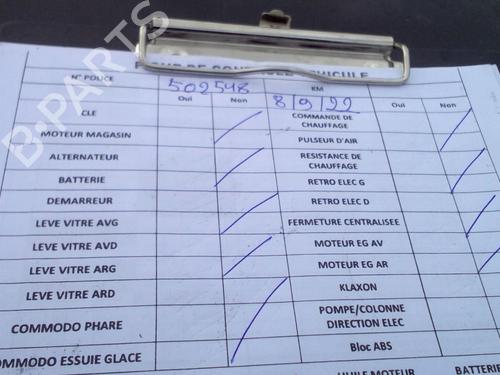 N° POLICE 502548 KM
Oui Non 8/9/22 Oui Non
CLE COMMANDE DE CHAUFFAGE
MOTEUR MAGASIN PULSEUR D'AIR
ALTERNATEUR RESISTANCE DE CHAUFFAGE
BATTERIE RETRO ELEC G
DEMARREUR RETRO ELEC D
LEVE VITRE AVG FERMETURE CENTRALISEE
LEVE VITRE AVD MOTEUR EG AV
LEVE VITRE ARG MOTEUR EG AR
LEVE VITRE ARD KLAXON
COMMODO PHARE POMPE/COLONNE DIRECTION ELEC
OMMODO ESSUIE GLACE Bloc ABS
HUILE MOTEUR BATTERIE
B-PARTS